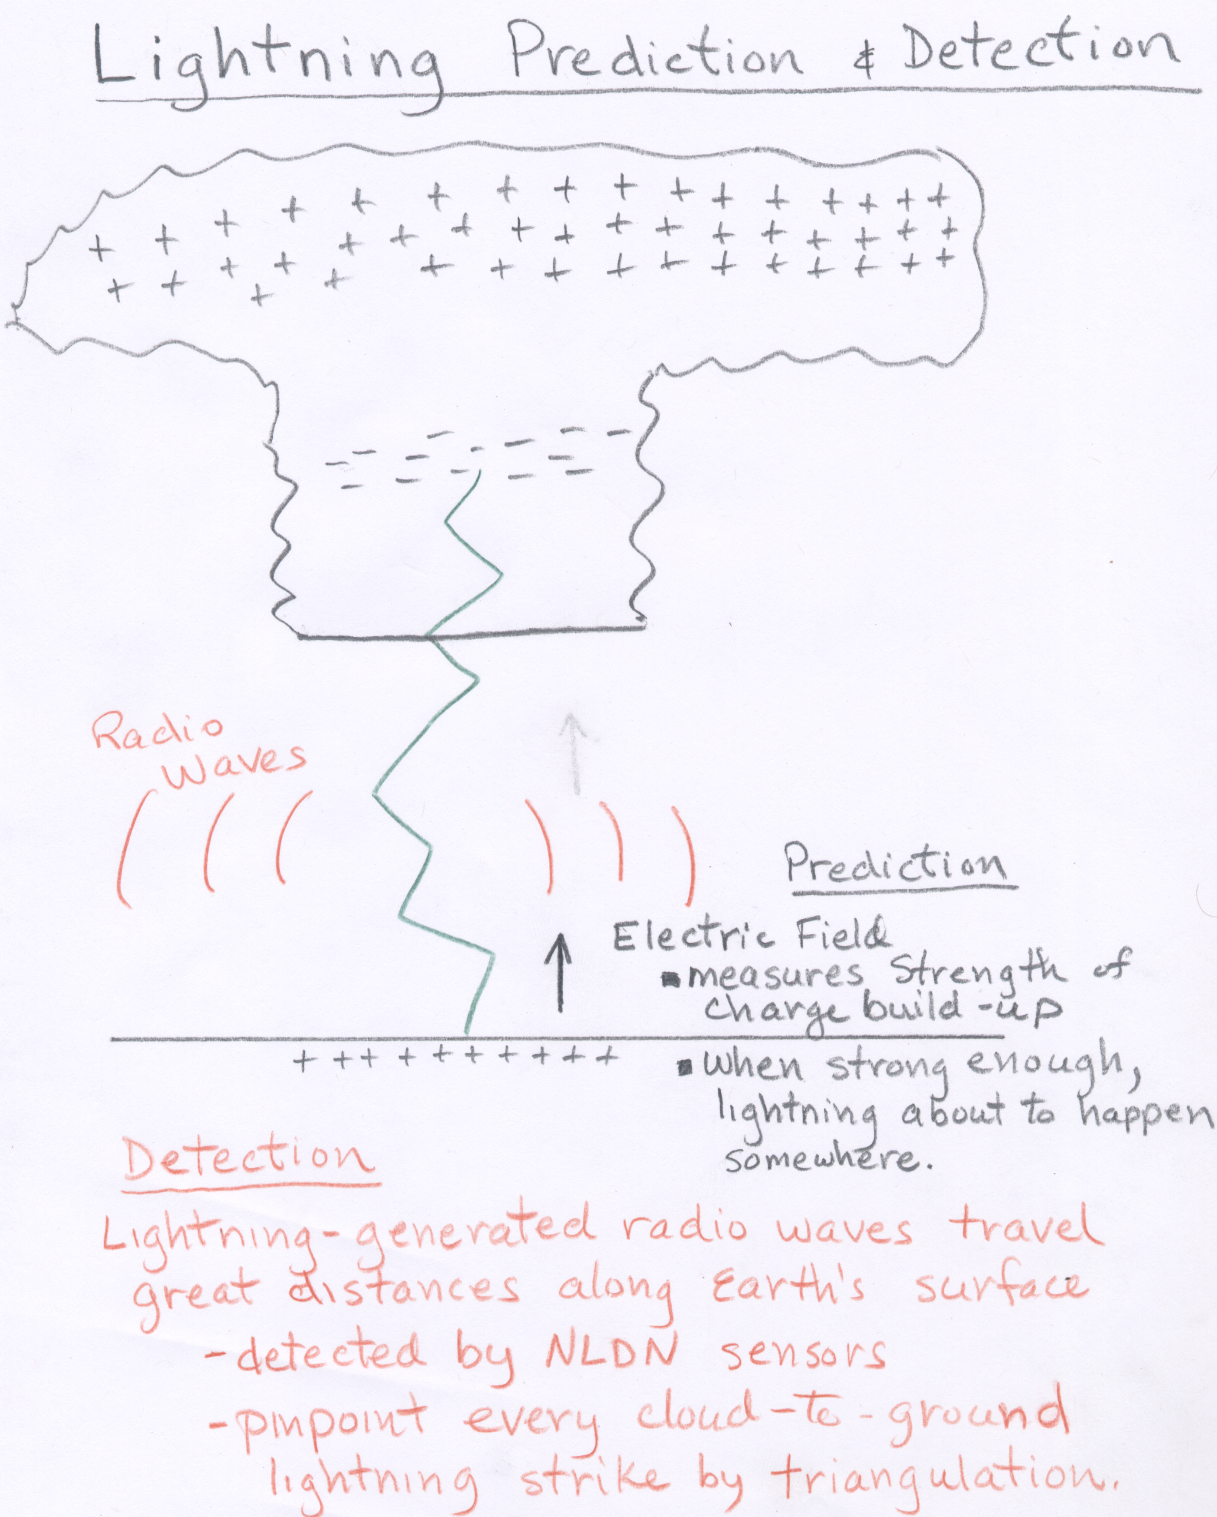 Lightning Prediction & Detection
+ + + + + + + + + + + + + + +
+ + + + + + + + + + + + + + +
+ + + + + + + + + + + + + + + +
Radio
Waves
Prediction
Electric Field
▪ measures Strength of
charge build-up
+ + + + + + + + + +
▪ When strong enough,
lightning about to happen
somewhere.
Detection
Lightning-generated radio waves travel
great distances along Earth's surface
- detected by NLDN sensors
- pinpoint every cloud-to-ground
lightning strike by triangulation.